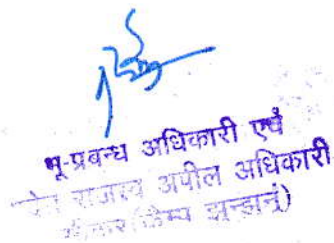 भू-प्रबन्ध अधिकारी एवं
राजस्व अपील अधिकारी
झुन्झुनूं)